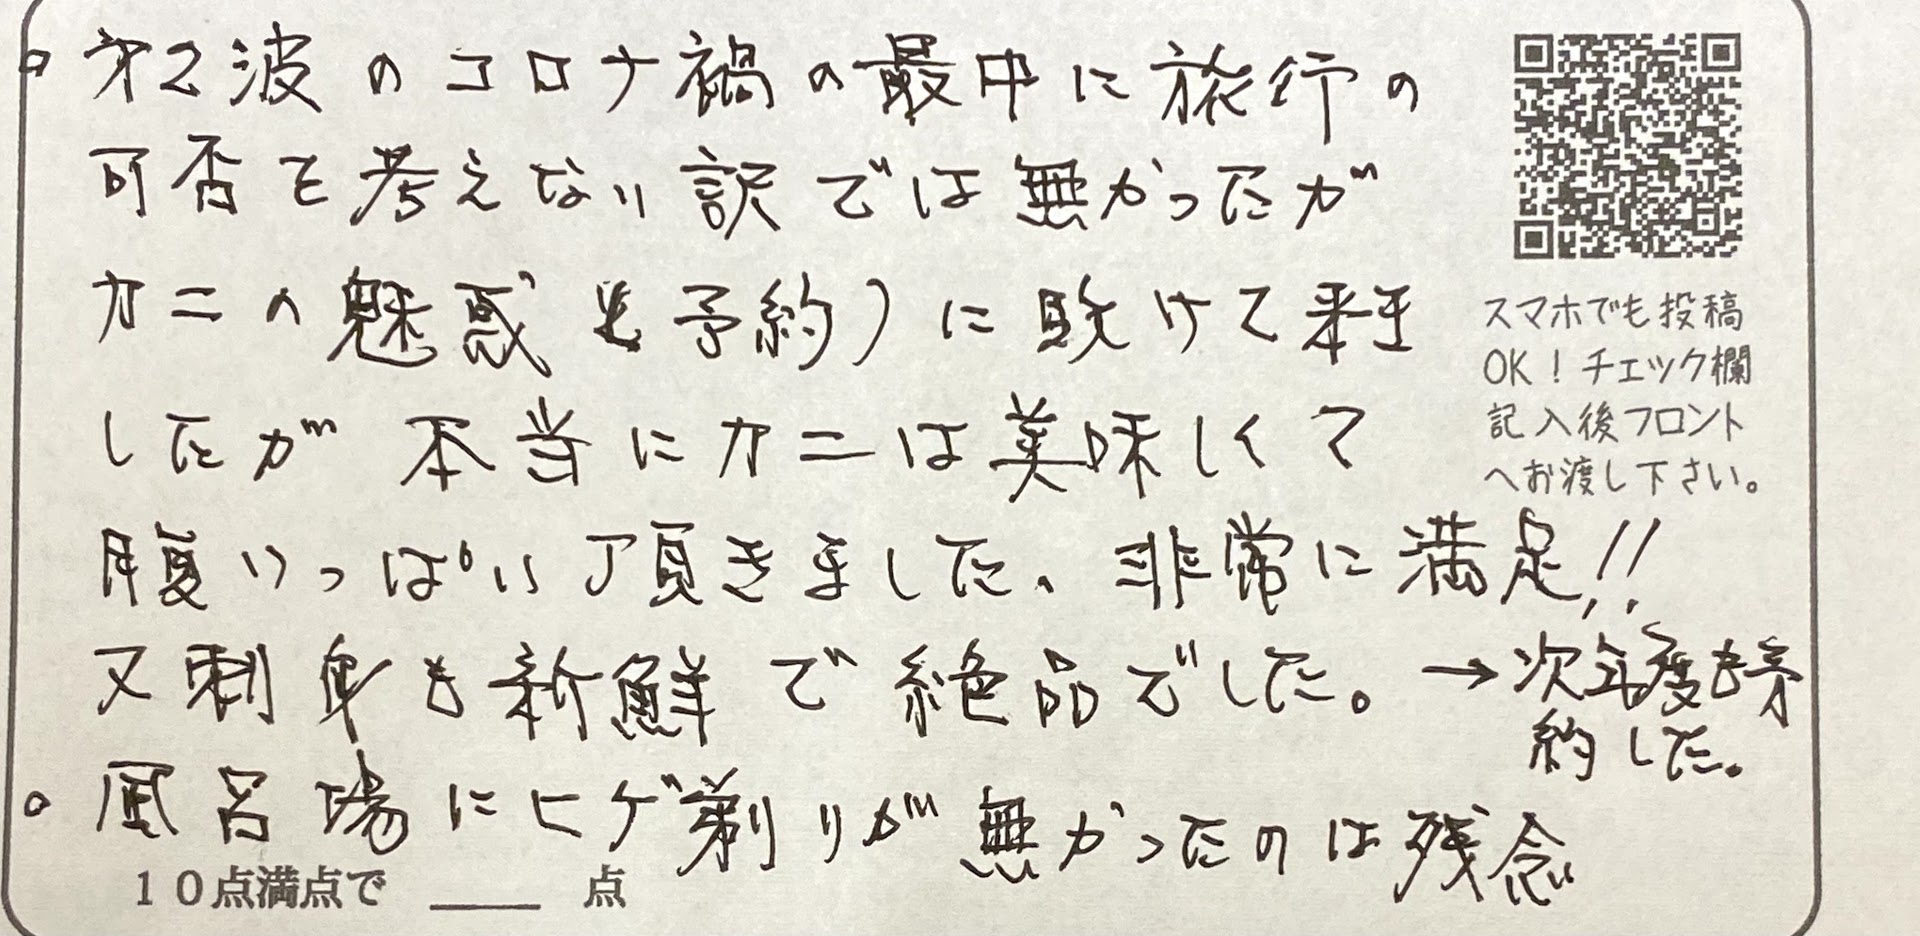 。第2波のコロナ禍の最中に旅行の
可否を考えない訳では無かったが
カニの魅惑(予約)に敗けて来
したが 本当にカニは美味しくて
腹いっぱい頂きました、非常に満足!!
又刺身も新鮮で絶品でした。→次年度も予
約した。
。風呂場にヒゲ剃りが無かったのは残念
10点満点で ____ 点
スマホでも投稿
OK!チェック欄
記入後フロント
へお渡し下さい。